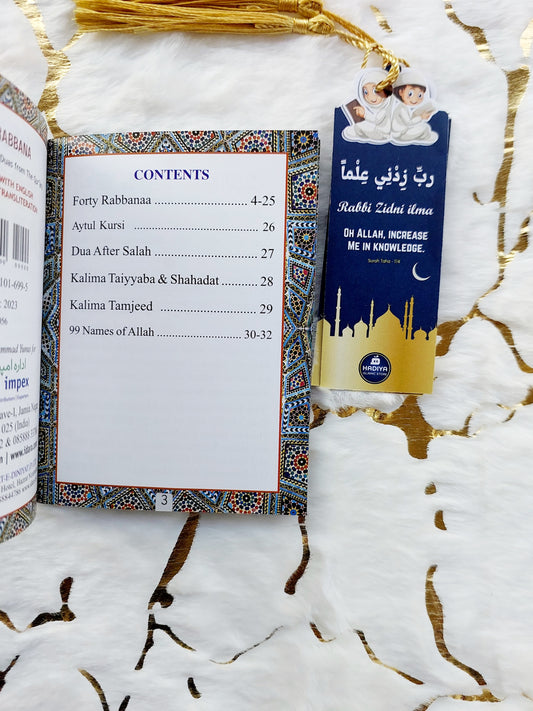 RABBANA
Duas from The Qur'
WITH ENGLISH
TRANSLITERATION
101-699-5
: 2023
056
ammad Yunus for
اداره
impex
025 (India)
CONTENTS
Forty Rabbanaa ........................ 4-25
Aytul Kursi ................................... 26
Dua After Salah ........................... 27
Kalima Taiyyaba & Shahadat ........ 28
Kalima Tamjeed ......................... 29
99 Names of Allah ...................... 30-32
3
رَبِّ زِدْنِي عِلْماً
Rabbi Zidni ilma
OH ALLAH, INCREASE
ME IN KNOWLEDGE.
Surah Taha - 114
HADIYA
ISLAMIC STORE